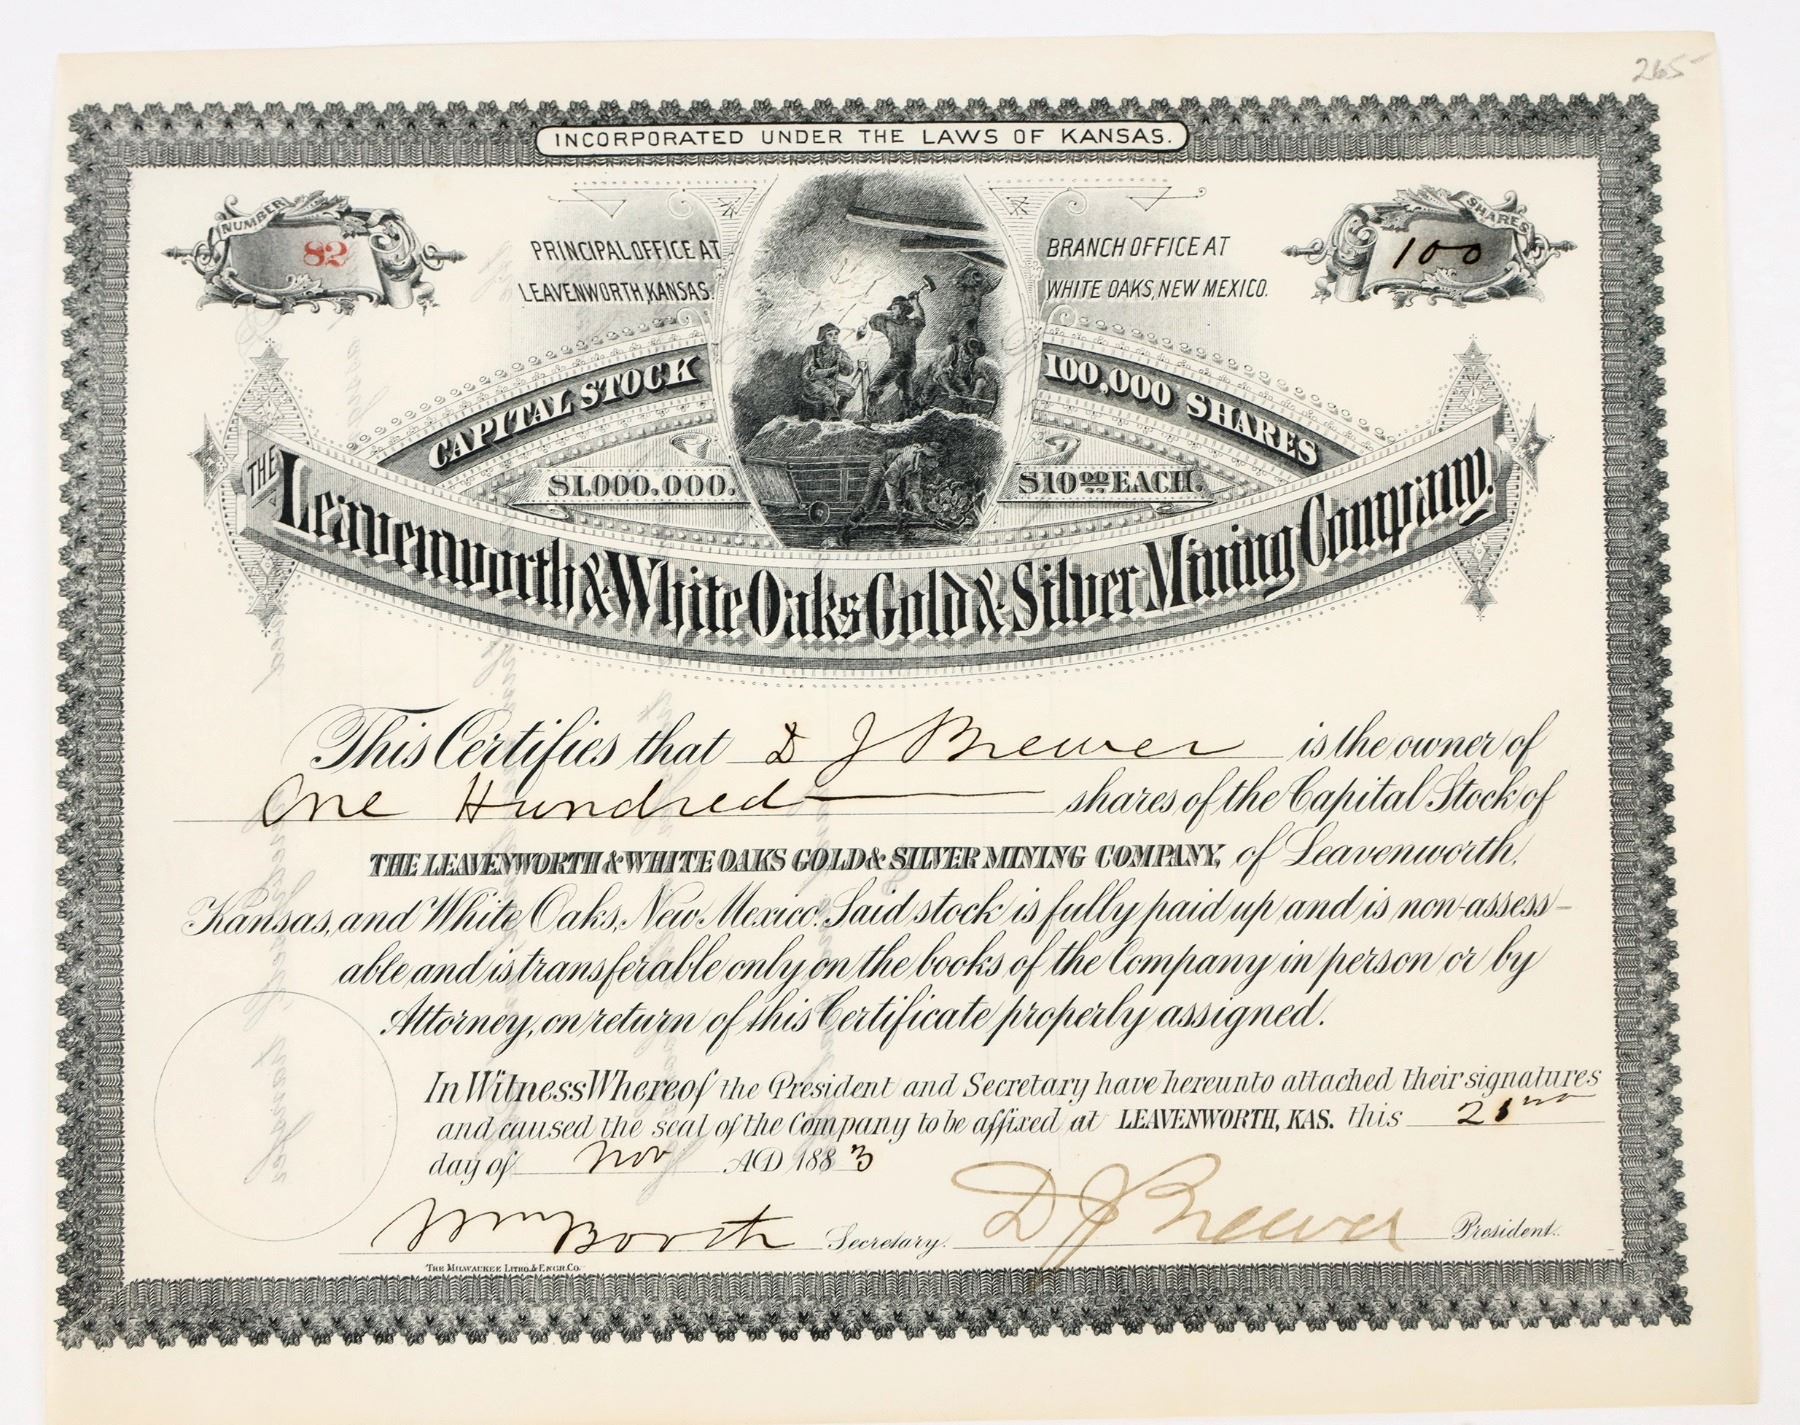 265-
INCORPORATED UNDER THE LAWS OF KANSAS.
NUMBER
82
PRINCIPAL OFFICE AT
LEAVENWORTH, KANSAS.
BRANCH OFFICE AT
WHITE OAKS, NEW MEXICO.
SHARES
100
CAPITAL STOCK
$1,000,000.
100,000 SHARES
$10.00 EACH.
THE Leavenworth & White Oaks Gold & Silver Mining Company.
This Certifies that D J Brewer is the owner of
One Hundred shares of the Capital Stock of
THE LEAVENWORTH & WHITE OAKS GOLD & SILVER MINING COMPANY, of Leavenworth,
Kansas, and White Oaks, New Mexico. Said stock is fully paid up and is non-assess-
able and is transferable only on the books of the Company in person or by
Attorney, on return of this Certificate properly assigned.
In Witness Whereof the President and Secretary have hereunto attached their signatures
and caused the seal of the Company to be affixed at LEAVENWORTH, KAS. this
day of Nov AD 1883
Wm Booth Secretary. D J Brewer President.
THE MILWAUKEE LITHO. & ENGR. CO.